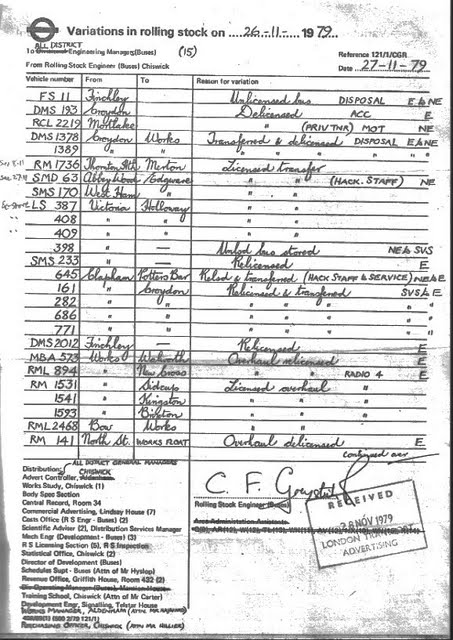 Variations in rolling stock on 26-11- 1979.
ALL DISTRICT
To Divisional Engineering Managers(Buses) (15)
Reference 121/1/CGR
From Rolling Stock Engineer (Buses) Chiswick
Date 27-11-79
Vehicle number From To Reason for variation
FS 11 Finchley Unlicensed bus DISPOSAL E & NE
DMS 193 Croydon Delicensed ACC E
RCL 2219 Mortlake " (PRIV/TNR) MOT NE
DMS 1378 Croydon Works Transferred & delicensed DISPOSAL E & NE
1389 " " " " " "
RM 1736 Thornton Hth Merton Licensed transfer
SMD 63 Abbey Wood Edgware " " (HACK. STAFF) NE
SMS 170 West Ham " " "
LS 387 Victoria Holloway " "
408 " " " "
409 " " " "
398 " — Unlcd bus stored NE & SVS
SMS 233 " — Relicensed E
645 Clapham Potters Bar Relsd & transferred (HACK STAFF & SERVICE) NE & E
161 " Croydon Relicensed & transferred SVS & E
282 " " " " " "
686 " " " " " "
771 " " " " " "
DMS 2012 Finchley — Relicensed E
MBA 573 Works Walworth Overhaul relicensed E
RML 894 " New Cross " " RADIO 4 E
RM 1531 " Sidcup Licensed overhaul "
1541 " Kingston " " "
1593 " Brixton " " "
RML 2468 Bow Works " "
RM 141 North St. WORKS FLOAT Overhaul delicensed E
continued over
Distribution: ALL DISTRICT GENERAL MANAGERS
CHISWICK
Advert Controller, Aldenham
Works Study, Chiswick (1)
Body Spec Section
Central Record, Room 34
Commercial Advertising, Lindsay House (7)
Costs Office (R S Engr - Buses) (2)
Scientific Adviser (2), Distribution Services Manager
Mech Engr (Development - Buses) (3)
R S Licensing Section (5), R S Inspection
Statistical Office (2)
Director of Development (Buses)
Schedules Supt - Buses (Attn of Mr Hyslop)
Revenue Office, Griffith House, Room 432 (2)
Training School, Chiswick (Attn of Mr Carter)
Development Engr, Signalling, Telstar House
WORKS MANAGER, ALDENHAM
PURCHASING OFFICER, CHISWICK (ATTN MR HILLIER)
Rolling Stock Engineer (Buses)
Area Administration Assistants
RECEIVED
28 NOV 1979
LONDON TRANSPORT
ADVERTISING